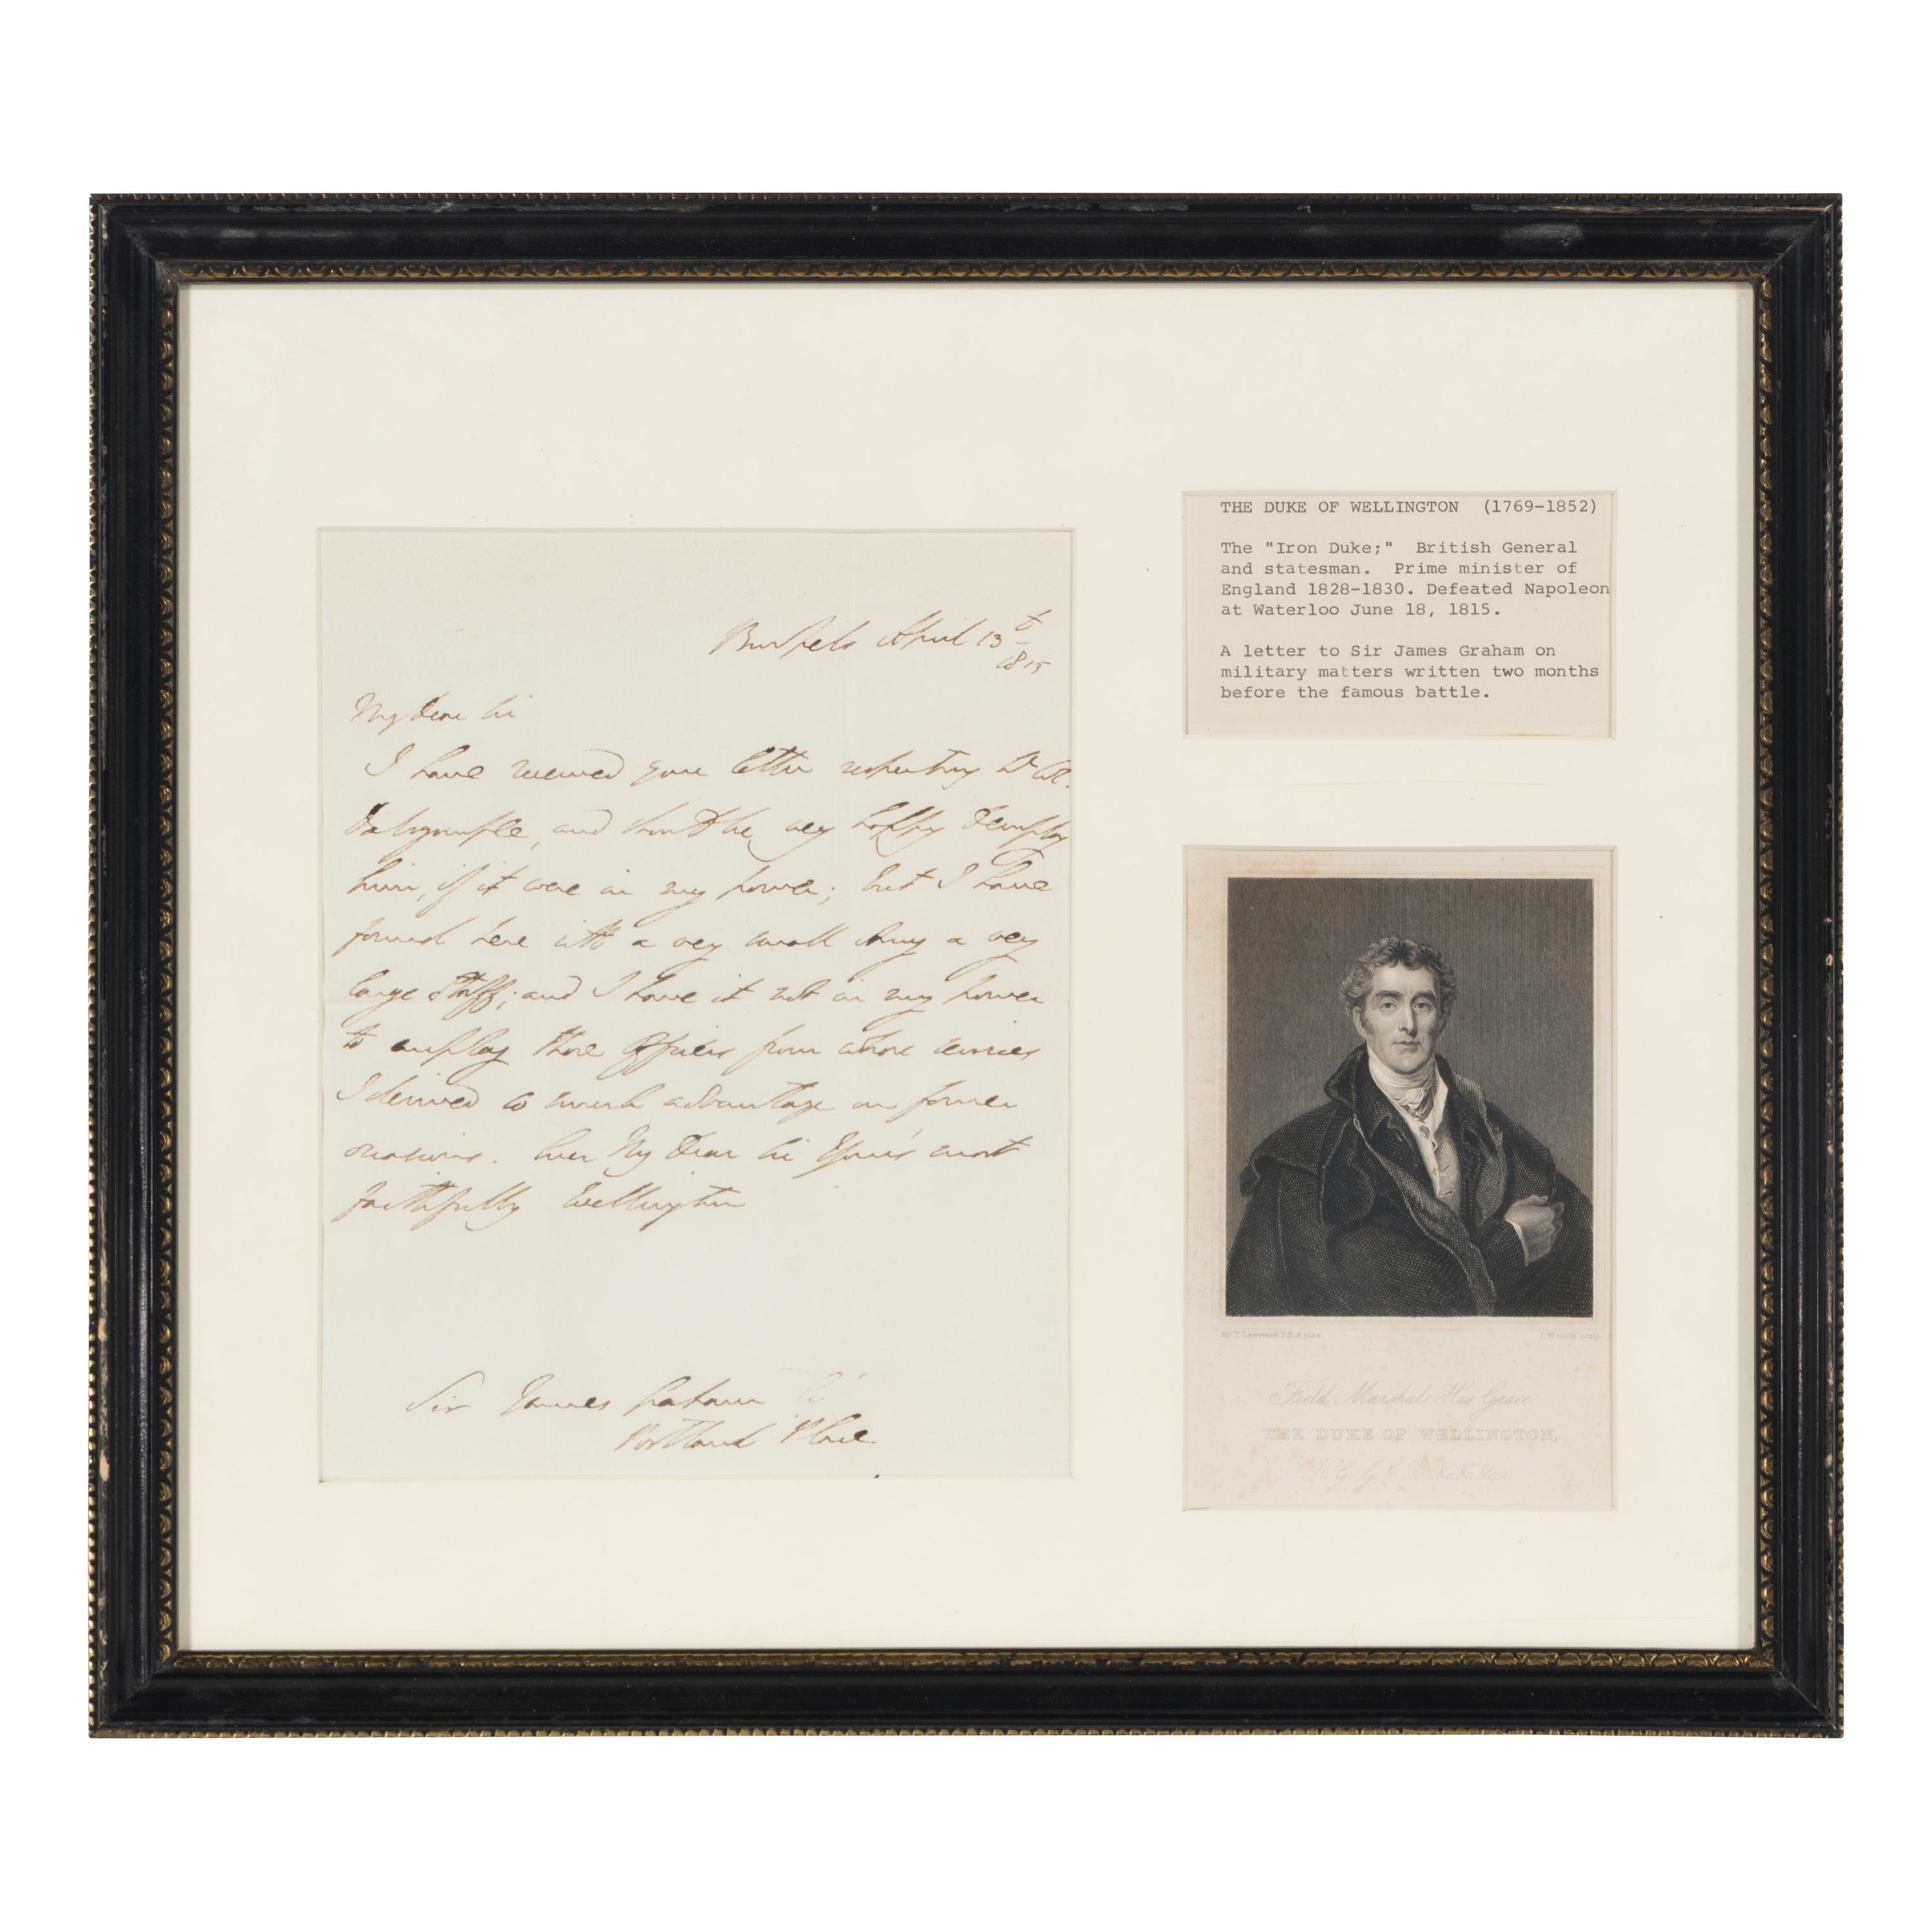 Brussels April 13th
1815
My Dear Sir
I have received your letter respecting Lt Col.
Dalrymple, and should be very happy to employ
him, if it were in my power; but I have
found here with a very small Army a very
large Staff; and I have it not in my power
to employ those Officers from whose services
I derived so much advantage on former
occasions. Ever My Dear Sir Your's most
faithfully Wellington
Sir James Graham
Portland Place
THE DUKE OF WELLINGTON (1769-1852)
The "Iron Duke;" British General
and statesman. Prime minister of
England 1828-1830. Defeated Napoleon
at Waterloo June 18, 1815.
A letter to Sir James Graham on
military matters written two months
before the famous battle.
Sir T. Lawrence P.R.A. pinx.
J.W. Cook sculp.
Field Marshal His Grace
THE DUKE OF WELLINGTON,
K.G. G.C.B.